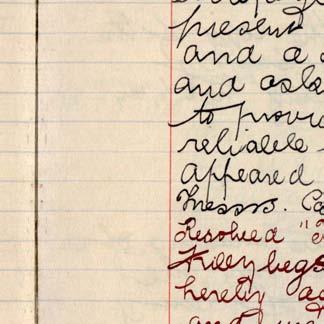 present
and a
and aske
to provi
reliable
appeared
Messrs. Ca
Resolved "T
Killybegs
hereby ag